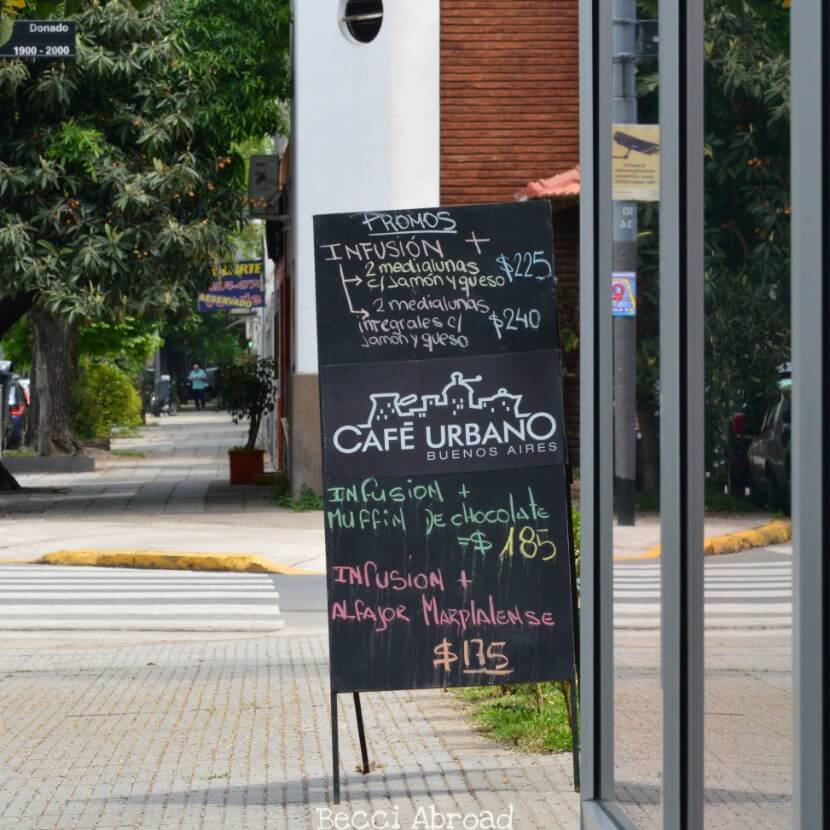 Donado
1900 - 2000
PROMOS
INFUSIÓN +
2 medialunas
c/ Jamón y queso
$225
2 medialunas
integrales c/
Jamón y queso
$240
RESERVADO
CAFÉ URBANO
BUENOS AIRES
INFUSION +
MUFFIN DE CHOCOLATE
=$ 185
INFUSION +
ALFAJOR MARPLALENSE
$175
Becci Abroad